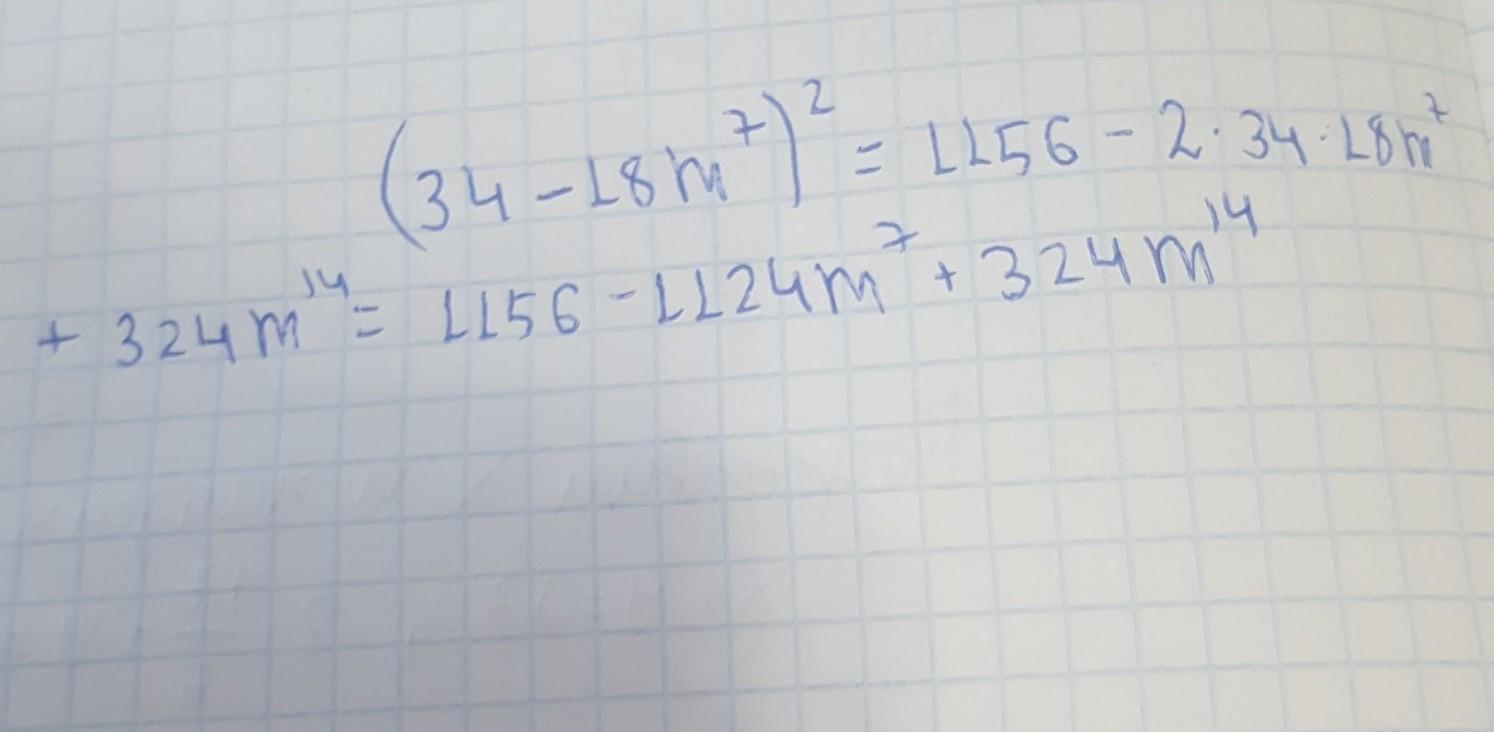 (34-18m⁷)² = 1156 - 2·34·18m⁷
+ 324m¹⁴ = 1156 - 1124m⁷ + 324m¹⁴